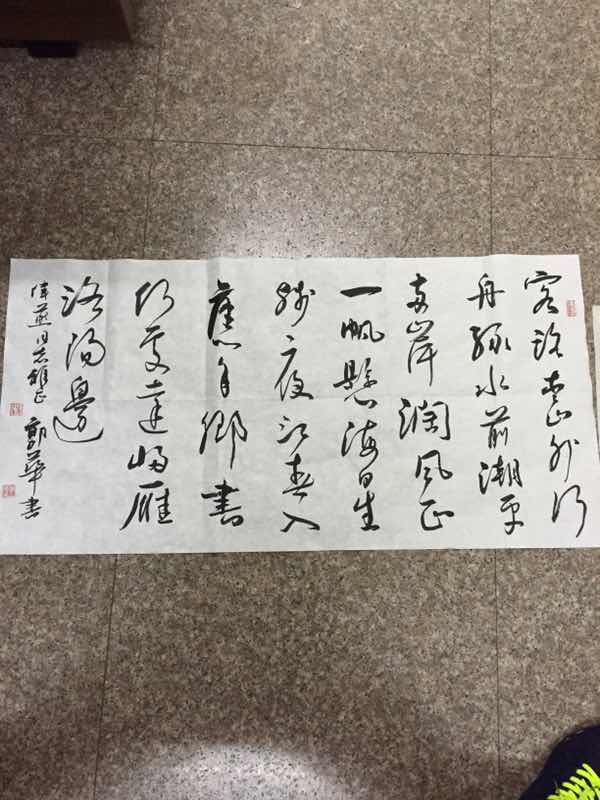 客路青山外行
舟綠水前潮平
兩岸濶风正
一帆懸海日生
殘夜江春入
舊年鄉書
何處達歸雁
洛陽邊
偉燕同志雅正
郭華書